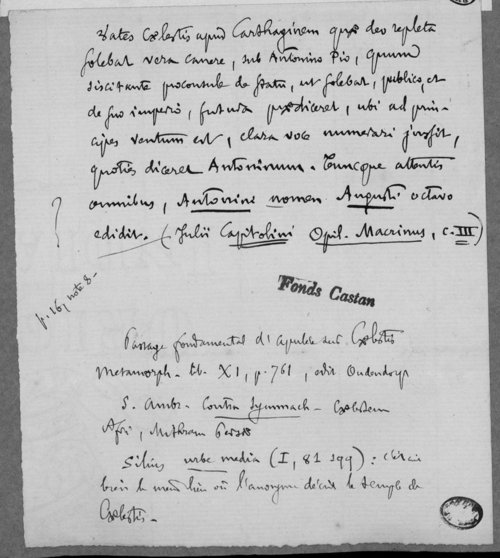 Vates Cælestis apud Carthaginem quæ deo repleta
solebat vera canere, sub Antonino Pio, quum
sciscitante proconsule de statu, ut solebat, publico, et
de suo imperio, futura prædiceret, ubi ad prin-
cipes ventum est, clara voce numerari jussit,
quoties diceret Antoninum. Tuncque attentis
omnibus, Antonini nomen Augusti octavo
edidit. (Julii Capitolini Opil. Macrinus, c. III)
?
p. 16, note 8.
Fonds Castan
Passage fondamental d'Apulée sur Cælestis
Metamorph. lib. XI, p. 761, edit. Oudendorp
S. Ambr. Contra Symmach. Cælestem
Afri, Mithram Persæ
Silius urbe media (I, 81 199) : c'est
bien le même lieu où l'anonyme décrit le temple de
Cælestis.